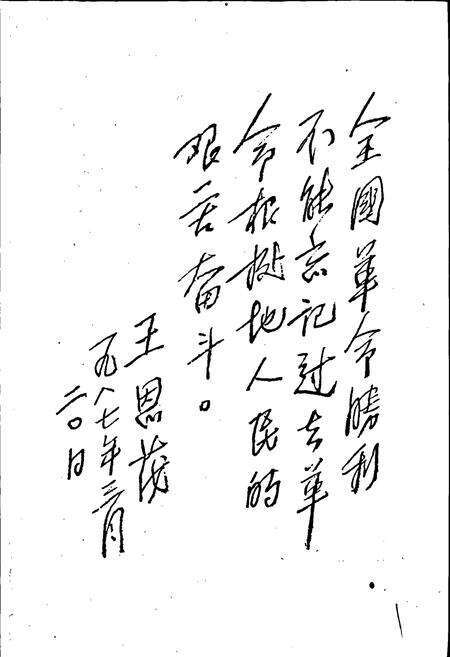 全國革命勝利
不能忘记过去革
命根据地人民的
艰苦奋斗。
王恩茂
一九八七年三月
二〇日